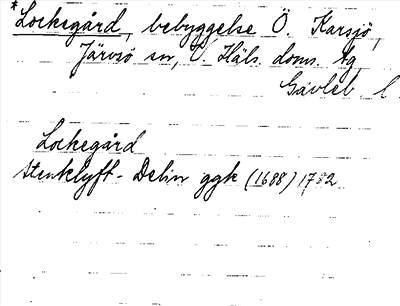 *Lockegård, bebyggelse Ö. Karsjö,
Järvsö sn, V. Häls. doms. tg
Gävleb. l.
Lockegård
Stenklyft - Delin ggk (1688) 1782